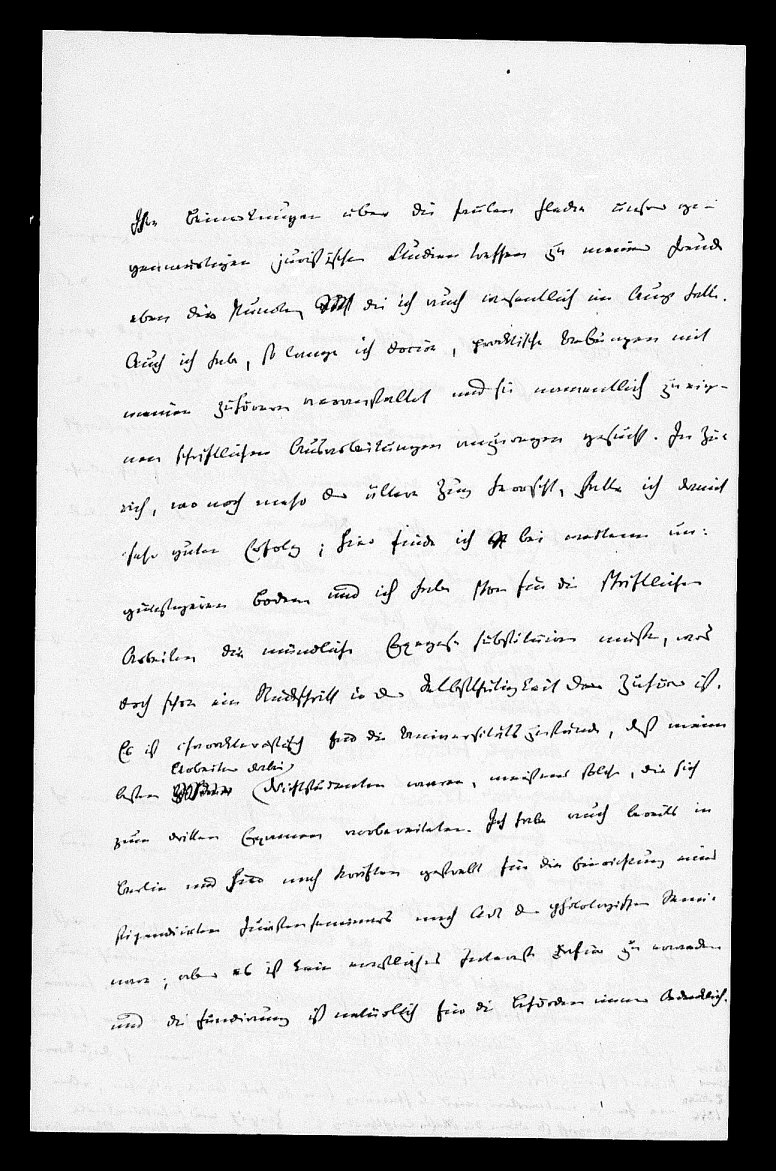 Ihre Bemerkungen über die faulen Flecke unserer ge-
genwärtigen juristischen Studien treffen zu meiner Freude
eben die Punkte, die ich auch wesentlich im Auge habe.
Auch ich habe, so lange ich docire, praktische Uebungen mit
meinen Zuhörern veranstaltet und sie namentlich zu eige-
nen schriftlichen Ausarbeitungen anzuregen gesucht. In Zü-
rich, wo noch mehr der ältere Zug herrscht, hatte ich damit
sehr guten Erfolg; hier finde ich bei weitem un-
günstigeren Boden und ich habe schon für die schriftlichen
Arbeiten die mündliche Exegese substituiren müssen, was
doch schon ein Rückschritt in der Selbstthätigkeit der Zuhörer ist.
Es ist charakteristisch für die Universitätszustände, daß meine
besten Arbeiter dabei Nichtstudenten waren, meistens solche, die sich
zum dritten Examen vorbereiteten. Ich habe auch bereits in
Berlin und hier nach Kräften gestrebt für die Einrichtung eines
stipendiirten Juristenseminars nach Art der philologischen Semi-
nare; aber es ist kein ernstliches Interesse dafür zu erwecken
und die Fundirung ist natürlich für die Behörden immer bedenklich.